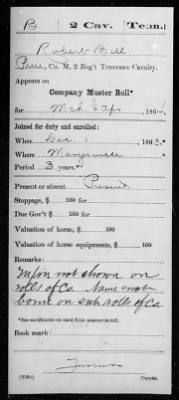 B 2 Cav. Tenn.
Robert Bell
Priv., Co. M, 2 Reg't Tennessee Cavalry.
Appears on
Company Muster Roll*
for Mch & Apr, 1864.
Joined for duty and enrolled:
When Dec. 1, 1863.*
Where Maryville
Period 3 years.*
Present or absent Present
Stoppage, $ 100 for
Due Gov't $ 100 for
Valuation of horse, $ 100
Valuation of horse equipments, $ 100
Remarks:
not shown on
rolls of Co Name not
borne on sub rolls of Co
*See enrollment on card from muster-in roll.
Book mark:
Copyist.